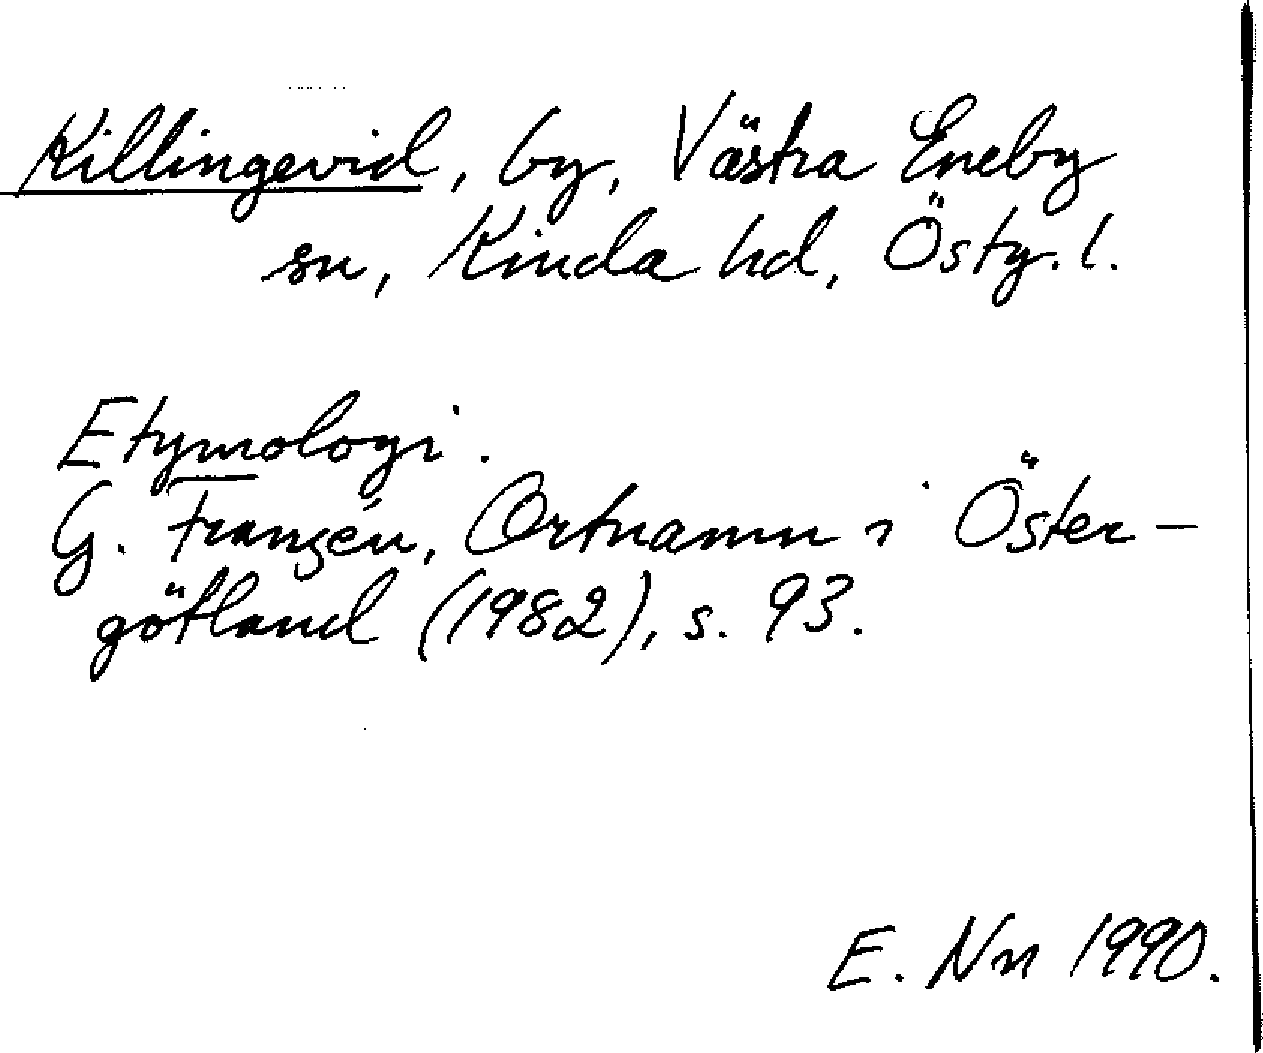 Killingevid, by, Västra Eneby
sn, Kinda hd, Östg. l.
Etymologi.
G. Franzén, Ortnamn i Öster-
götland (1982), s. 93.
E. Nn 1990.